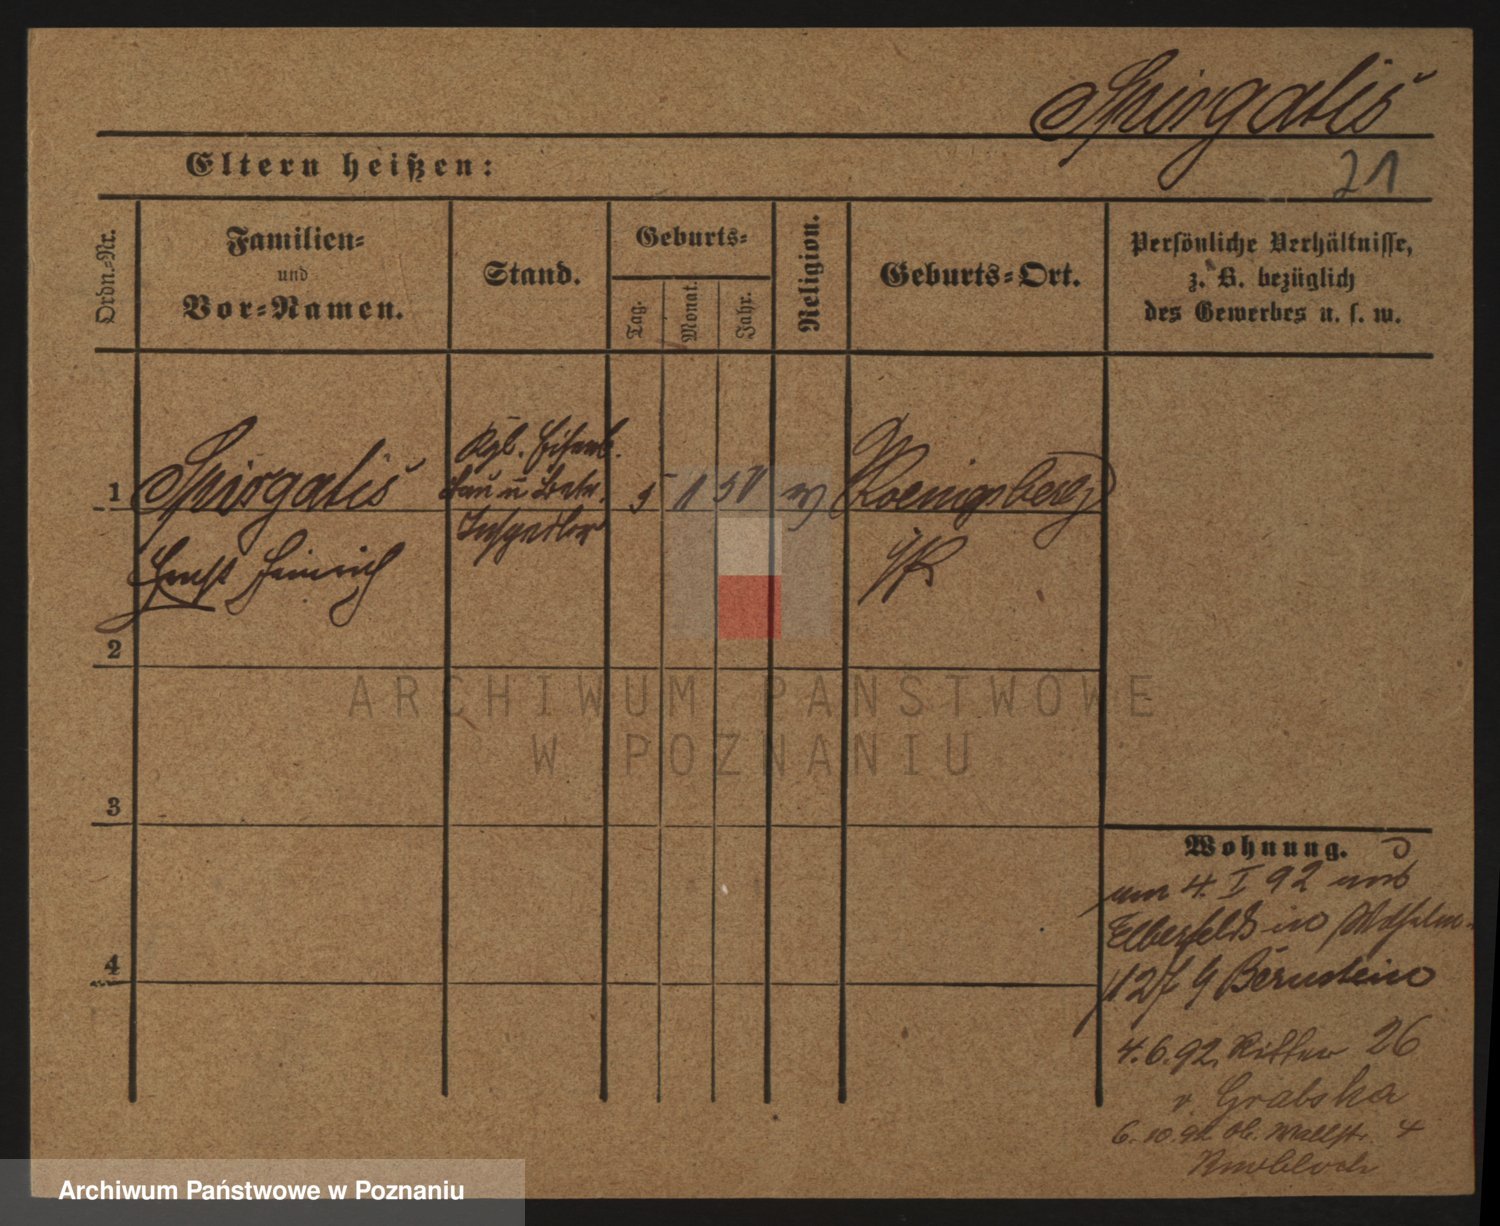 Spirgatis
21
Eltern heißen:
Ordn.-Nr.
Familien-
und
Vor-Namen.
Stand.
Geburts-
Tag.
Monat.
Jahr.
Religion.
Geburts-Ort.
Persönliche Verhältnisse,
z. B. bezüglich
des Gewerbes u. s. w.
1
Spirgatis
Ernst Heinrich
Kgl. Eisenb.
Bau u Betr.
Inspektor
5 11 51
Koenigsberg
i/Pr
2
3
4
Wohnung.
4. I 92
Elberfeld in Wilhelm-
Bernstein
4.6.92. Ritter 26
v. Grabska
6.10.92 Wallstr. 4
Knobloch
ARCHIWUM PAŃSTWOWE
W POZNANIU
Archiwum Państwowe w Poznaniu